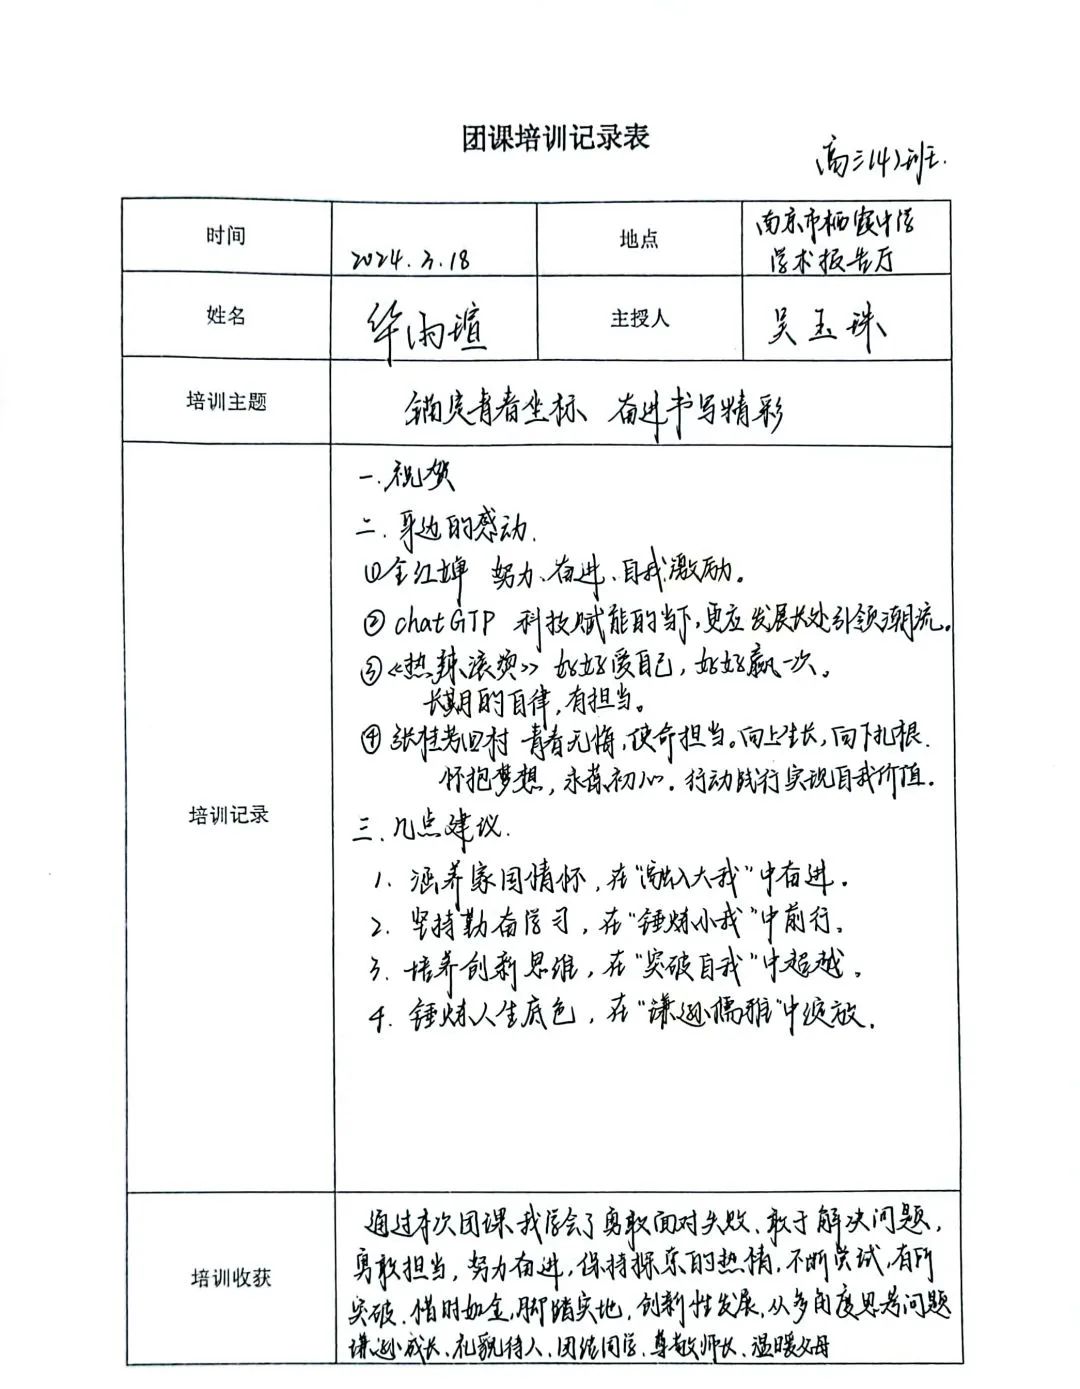 团课培训记录表
高三(4)班.
时间 2024.3.18 地点 南京市栖霞中学
学术报告厅
姓名 华雨瑄 主授人 吴玉珠
培训主题 锚定青春坐标、奋进书写精彩
培训记录
一.祝贺
二.身边的感动.
①全红婵 努力、奋进、自我激励。
②chatGTP 科技赋能的当下,更应发展长处引领潮流。
③《热辣滚烫》 好好爱自己,好好赢一次。
长期的自律,有担当。
④张桂芳回村 青春无悔,使命担当。向上生长,向下扎根.
怀抱梦想,永葆初心.行动践行实现自我价值.
三.几点建议.
1. 涵养家国情怀,在"融入大我"中奋进.
2. 坚持勤奋学习,在"锤炼小我"中前行.
3. 培养创新思维,在"突破自我"中超越.
4. 锤炼人生底色,在"谦逊儒雅"中绽放.
培训收获
通过本次团课我学会了勇敢面对失败、敢于解决问题,
勇敢担当,努力奋进,保持探索的热情,不断尝试,有所
突破.惜时如金,脚踏实地,创新性发展,从多角度思考问题
谦逊成长、礼貌待人、团结同学、尊敬师长、温暖父母